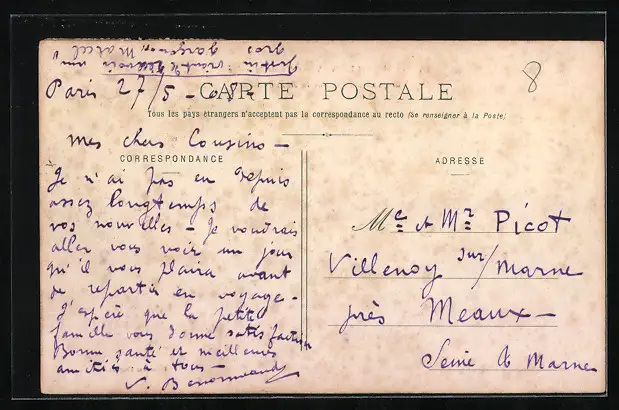 Paris 27/5-08-
CARTE POSTALE
Tous les pays étrangers n'acceptent pas la correspondance au recto (Se renseigner à la Poste)
8
mes chers Cousins -
CORRESPONDANCE
Je n'ai pas eu depuis
assez longtemps de
vos nouvelles - Je voudrais
aller vous voir un jour
qu'il vous plaira avant
de repartir en voyage -
J'espère que la petite
famille vous donne satisfaction
Bonne santé et meilleures
amitiés à tous -
ADRESSE
Me et Mr Picot
Villenoy sur/Marne
près Meaux -
Seine & Marne
gros garçon Marcel